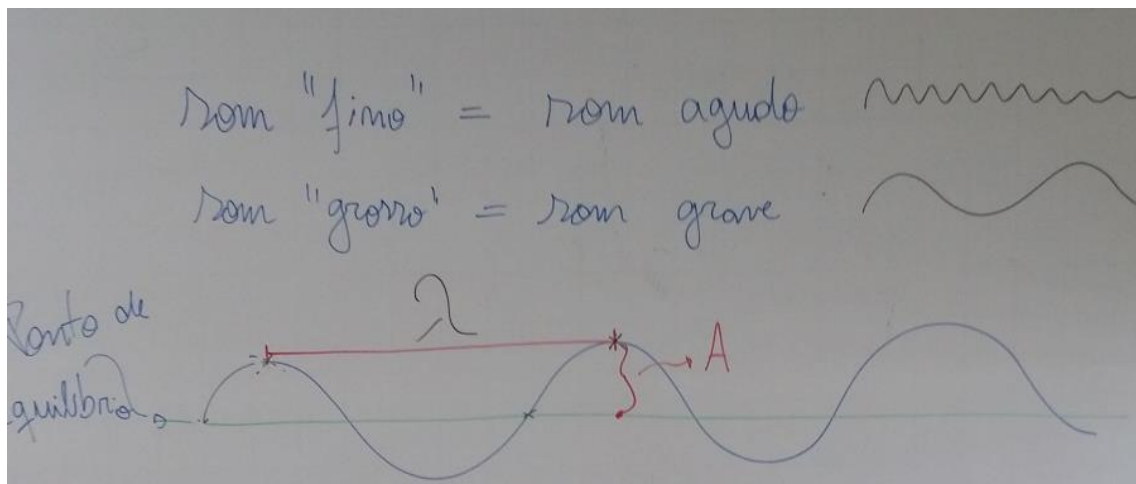 som "fino" = som agudo
som "grosso" = som grave
λ
Ponto de
equilíbrio
A